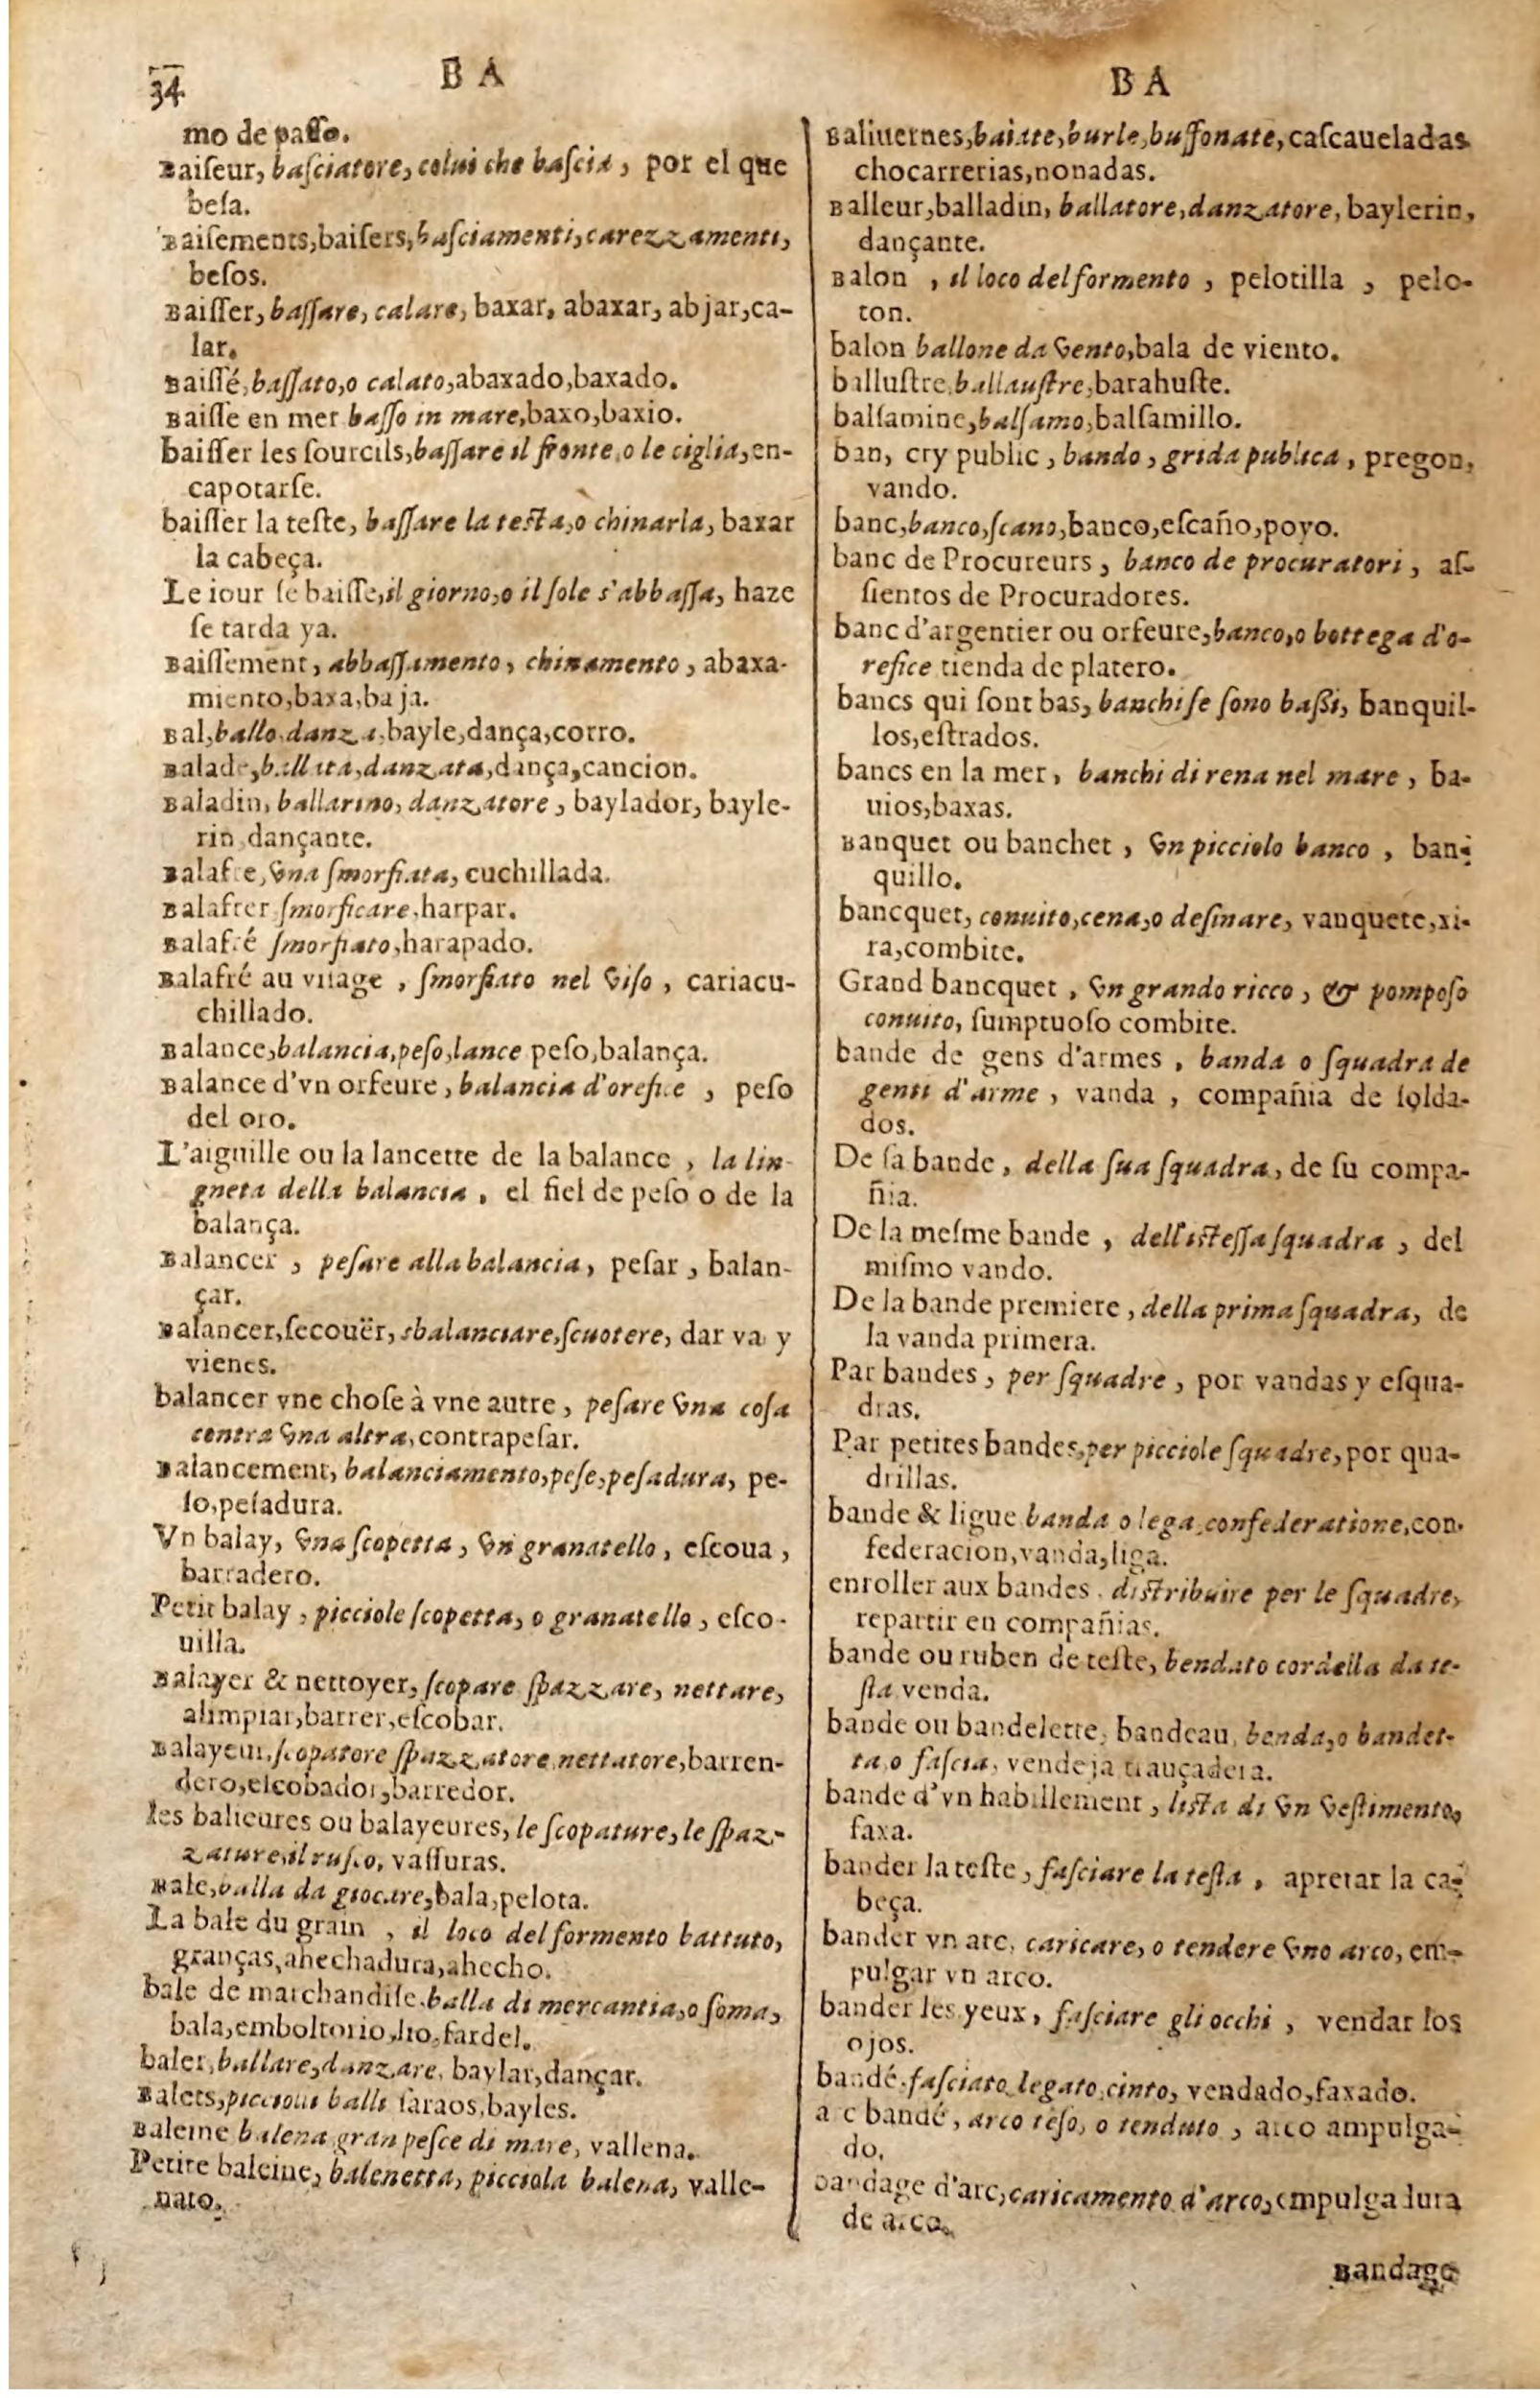 34
B A
B A
mo de passo.
Baiſeur, baſciatore, colui che baſcia, por el que
beſa.
Baiſements, baiſers, baſciamenti, carezzamenti,
beſos.
Baiſſer, baſſare, calare, baxar, abaxar, abjar, ca-
lar.
Baiſſé, baſſato, o calato, abaxado, baxado.
Baiſſe en mer baſſo in mare, baxo, baxio.
baiſſer les ſourcils, baſſare il fronte, o le ciglia, en-
capotarſe.
baiſſer la teſte, baſſare la teſta, o chinarla, baxar
la cabeça.
Le iour ſe baiſſe, il giorno, o il ſole s'abbaſſa, haze
ſe tarda ya.
Baiſſement, abbaſſamento, chinamento, abaxa-
miento, baxa, baja.
Bal, ballo, danza, bayle, dança, corro.
Balade, ballata, danzata, dança, cancion.
Baladin, ballarino, danzatore, baylador, bayle-
rin, dançante.
Balafre, vna ſmorfiata, cuchillada.
Balafrer ſmorficare, harpar.
Balafré ſmorfiato, harapado.
Balafré au viſage, ſmorfiato nel viſo, cariacu-
chillado.
Balance, balancia, peſo, lance peſo, balança.
Balance d'vn orfeure, balancia d'orefice, peſo
del oro.
L'aiguille ou la lancette de la balance, la lin-
gneta della balancia, el fiel de peſo o de la
balança.
Balancer, peſare alla balancia, peſar, balan-
çar.
Balancer, ſecouër, sbalanciare, ſcuotere, dar va y
vienes.
balancer vne choſe à vne autre, peſare vna coſa
contra vna altra, contrapeſar.
Balancement, balanciamento, peſe, peſadura, pe-
ſo, peſadura.
Vn balay, vna ſcopetta, vn granatello, eſcoua,
barradero.
Petit balay, picciole ſcopetta, o granatello, eſco-
uilla.
Balayer & nettoyer, ſcopare ſpazzare, nettare,
alimpiar, barrer, eſcobar.
Balayeur, ſcopatore ſpazzatore nettatore, barren-
dero, eſcobador, barredor.
les balieures ou balayeures, le ſcopature, le ſpaz-
zature, il ruſco, vaſſuras.
Bale, balla da giocare, bala, pelota.
La bale du grain, il loco del formento battuto,
granças, ahechadura, ahecho.
bale de marchandiſe, balla di mercantia, o ſoma,
bala, emboltorio, lio, fardel.
baler, ballare, danzare, baylar, dançar.
Balets, piccioli balli ſaraos, bayles.
Baleine balena gran peſce di mare, vallena.
Petite baleine, balenetta, picciola balena, valle-
nato.
Baliuernes, baiate, burle, buffonate, caſcaueladas
chocarrerias, nonadas.
Balleur, balladin, ballatore, danzatore, baylerin,
dançante.
Balon, il loco del formento, pelotilla, pelo-
ton.
balon ballone da vento, bala de viento.
balluſtre, ballauſtre, barahuſte.
balſamine, balſamo, balſamillo.
ban, cry public, bando, grida publica, pregon,
vando.
banc, banco, ſcano, banco, eſcaño, poyo.
banc de Procureurs, banco de procuratori, aſ-
ſientos de Procuradores.
banc d'argentier ou orfeure, banco, o bottega d'o-
refice tienda de platero.
bancs qui ſont bas, banchi ſe ſono baßi, banquil-
los, eſtrados.
bancs en la mer, banchi di rena nel mare, ba-
uios, baxas.
Banquet ou banchet, vn picciolo banco, ban-
quillo.
bancquet, conuito, cena, o deſinare, vanquete, xi-
ra, combite.
Grand bancquet, vn grando ricco, & pompoſo
conuito, ſumptuoſo combite.
bande de gens d'armes, banda o ſquadra de
genti d'arme, vanda, compañia de ſolda-
dos.
De ſa bande, della ſua ſquadra, de ſu compa-
ñia.
De la meſme bande, dell'iſteſſa ſquadra, del
miſmo vando.
De la bande premiere, della prima ſquadra, de
la vanda primera.
Par bandes, per ſquadre, por vandas y eſqua-
dras.
Par petites bandes, per picciole ſquadre, por qua-
drillas.
bande & ligue banda o lega, confederatione, con-
federacion, vanda, liga.
enroller aux bandes, diſtribuire per le ſquadre,
repartir en compañias.
bande ou ruben de teſte, bendato cordella da te-
ſta venda.
bande ou bandelette, bandeau, benda, o bandet-
ta, o faſcia, vendeja trauçadera.
bande d'vn habillement, liſta di vn veſtimento,
faxa.
bander la teſte, faſciare la teſta, apretar la ca-
beça.
bander vn arc, caricare, o tendere vno arco, em-
pulgar vn arco.
bander les yeux, faſciare gli occhi, vendar los
ojos.
bandé, faſciato, legato, cinto, vendado, faxado.
arc bandé, arco teſo, o tenduto, arco ampulga-
do.
bandage d'arc, caricamento d'arco, empulgadura
de arco.
Bandage